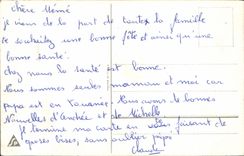 chère Mémé
je viens de la part de toutes la famille
te souhaiter une bonne fête d'ainsi qu'une
bonne santé.
chez nous la santé est bonne.
Nous sommes seules maman et moi car
papa est en Touraine. Nous avons de bonnes
Nouvelles d'Andrée et de Michelle
Je termine ma carte en vous faisant de
grosses bises, sans oublier pépé